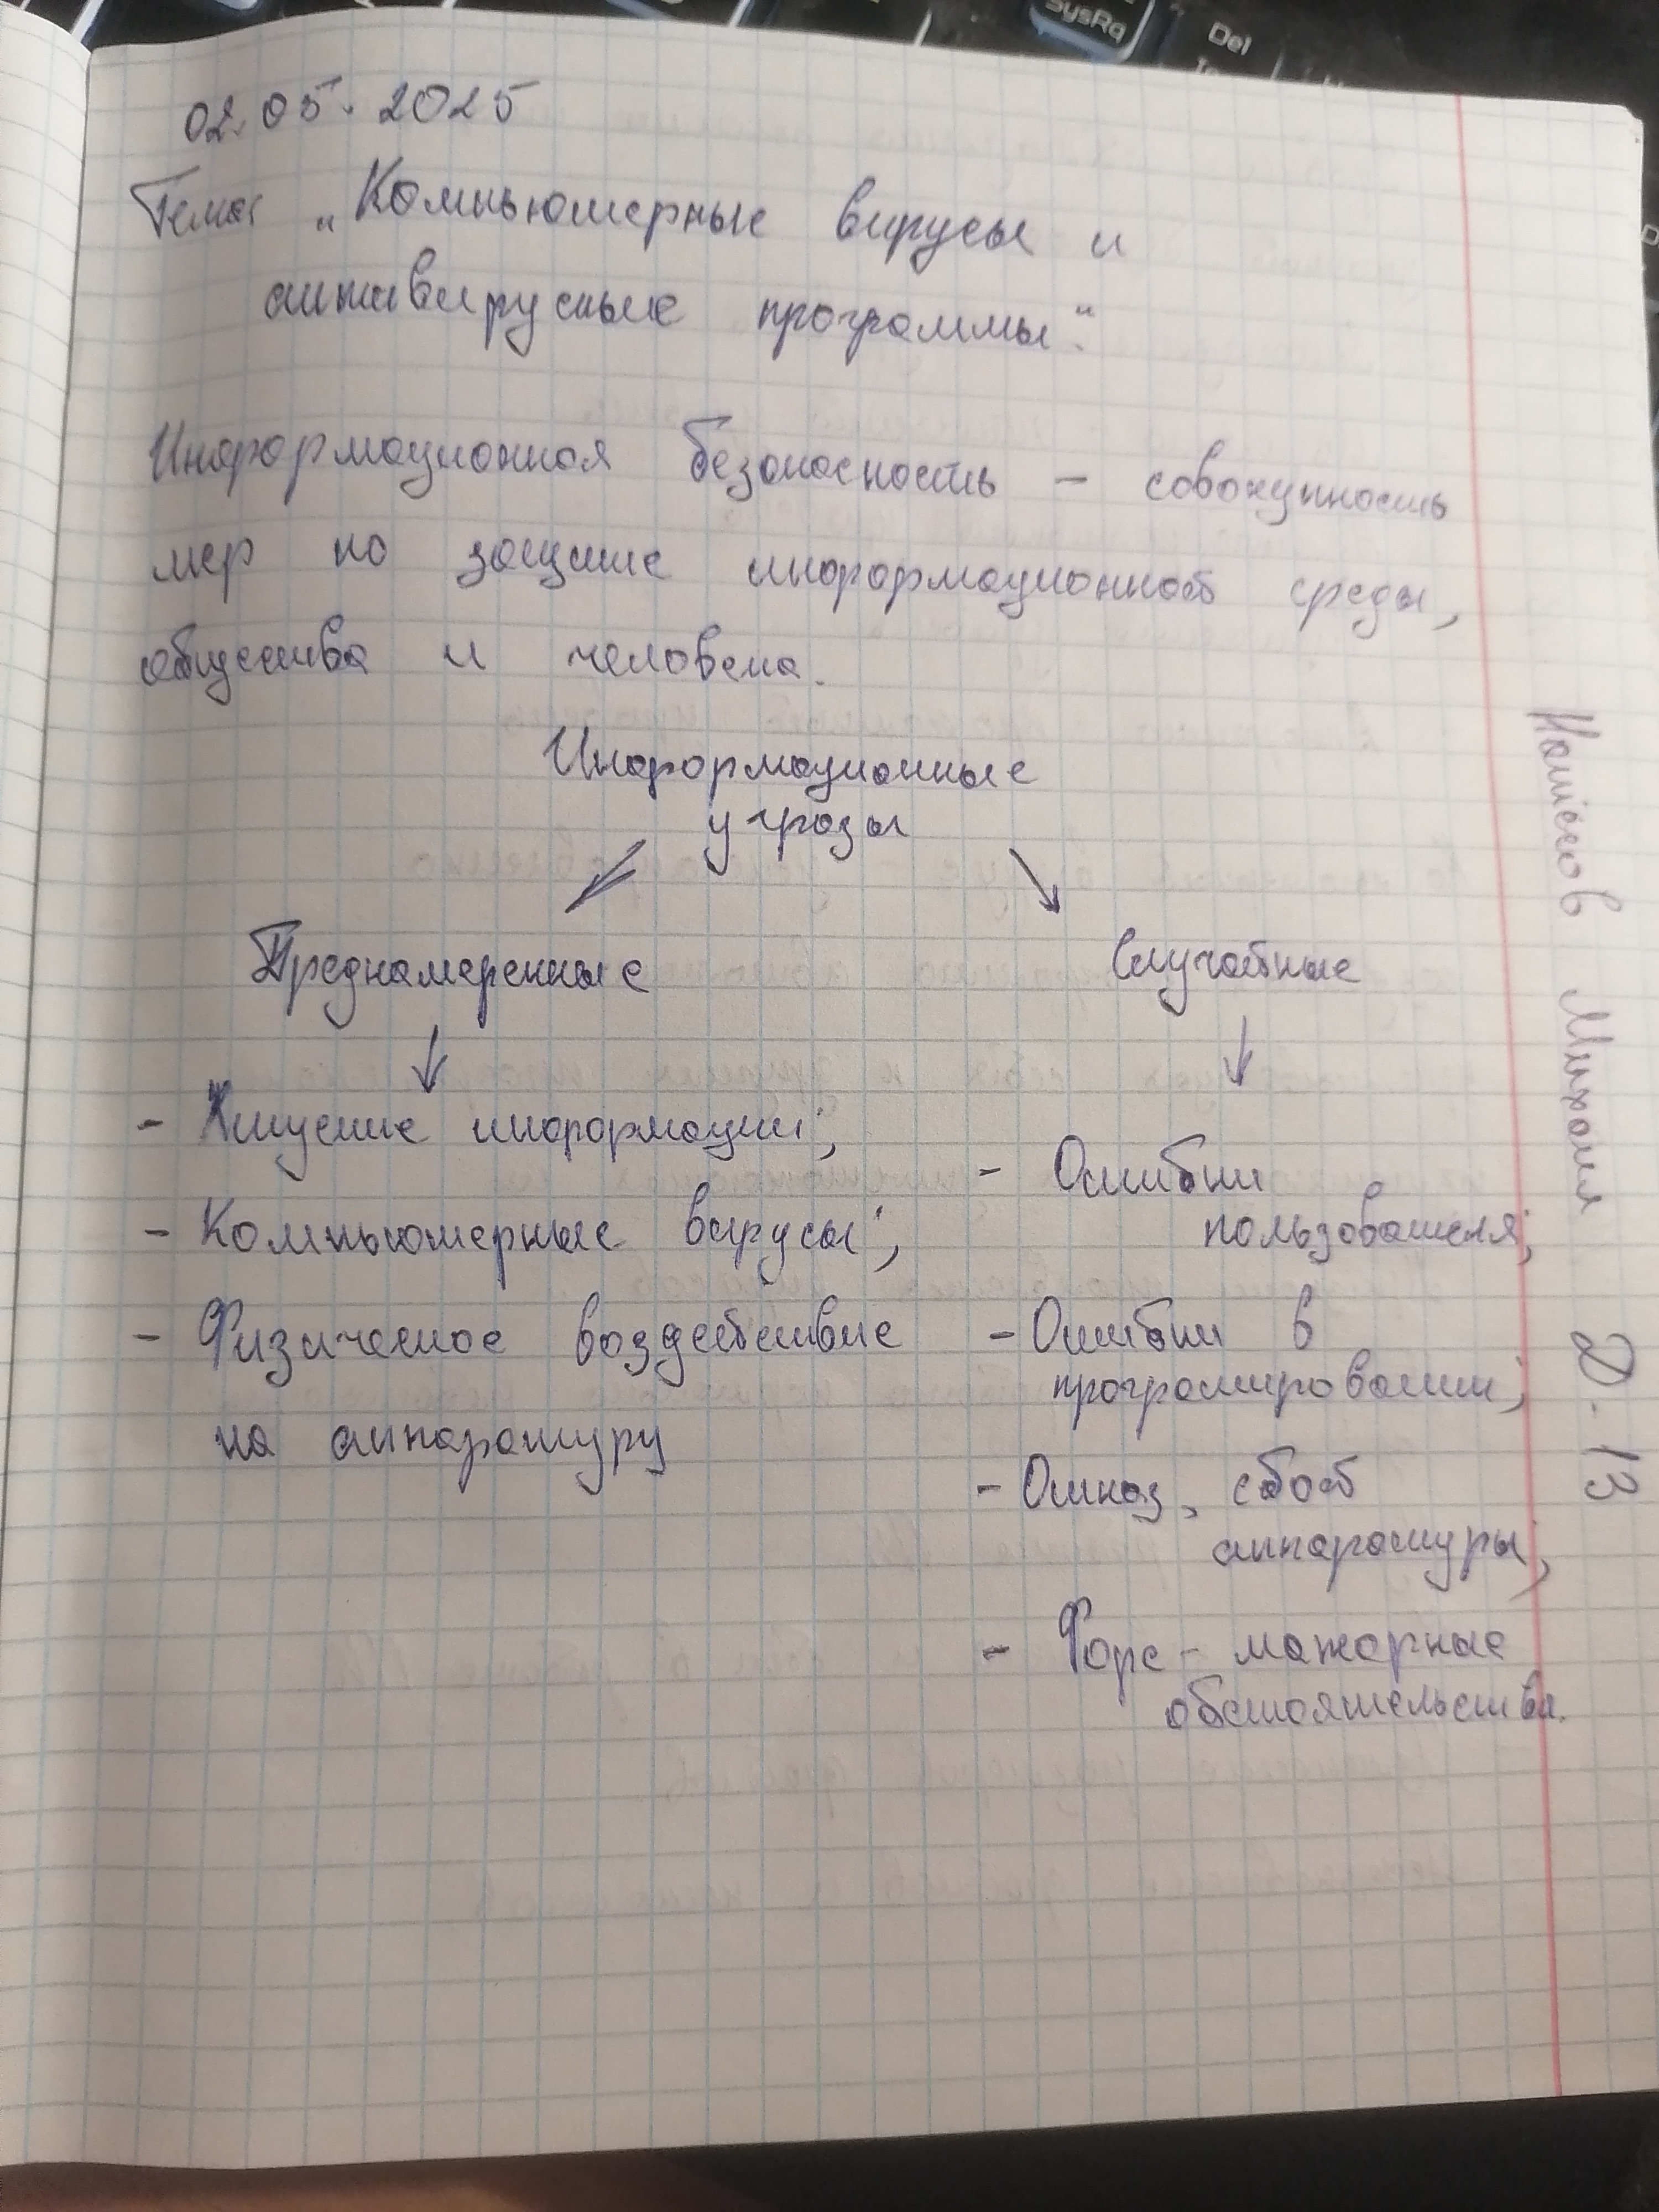 02.05.2025
Тема: „Компьютерные вирусы и
антивирусные программы".
Информационная безопасность – совокупность
мер по защите информационной среды,
общества и человека.
Информационные
угрозы
Преднамеренные
Случайные
- Хищение информации;
- Компьютерные вирусы;
- Физическое воздействие
на аппаратуру
- Ошибки
пользователя;
- Ошибки в
програмировании;
- Отказ, сбой
аппаратуры;
- Форс-мажорные
обстоятельства.
Михаил Д-13
SysRq
Del